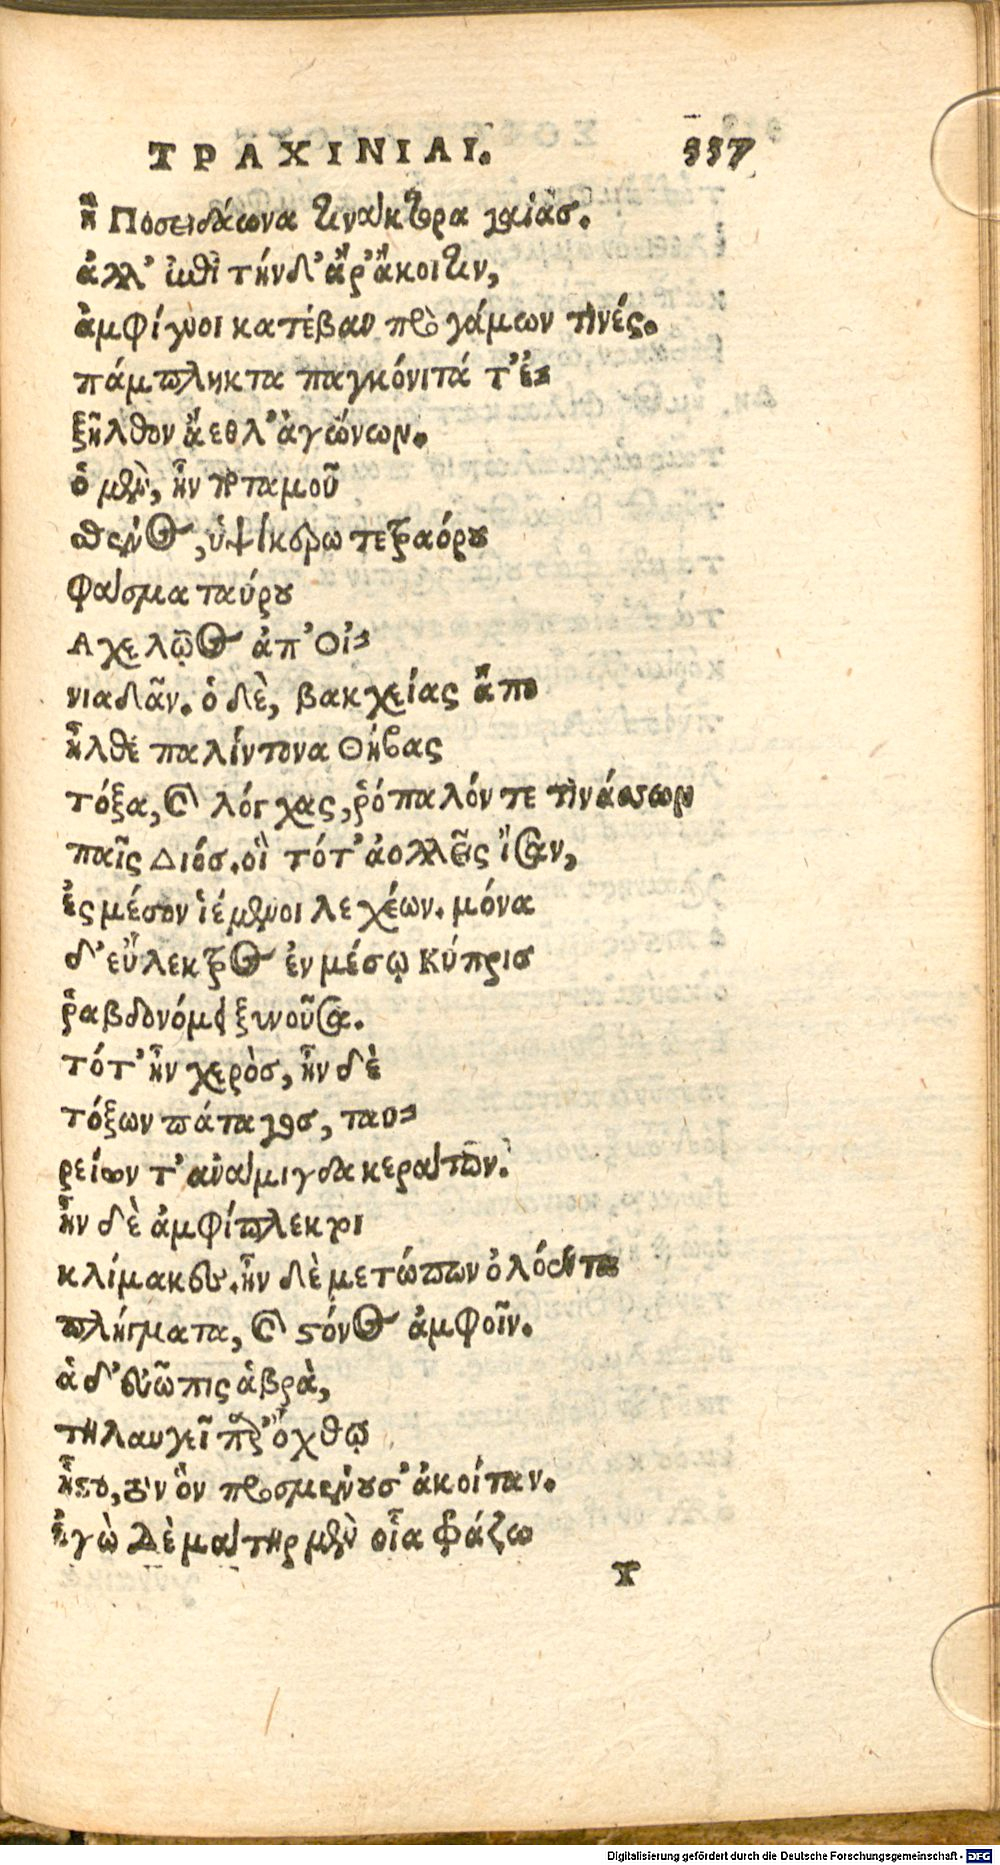 ΤΡΑΧΙΝΙΑΙ. 337
ἢ Ποσειδάωνα τινάκτορα γαίας.
ἀλλ' ἐπὶ τήνδ' ἄρ' ἄκοιτιν,
ἀμφίγυοι κατέβαν πρὸ γάμων τινές.
πάμπληκτα παγκόνιτά τ' ἐ-
ξῆλθον ἄεθλ' ἀγώνων.
ὁ μὲν, ἦν ποταμοῦ
σθένος, ὑψίκερω τετραόρου
φάσμα ταύρου
Αχελῷος ἀπ' Οἰ-
νιαδᾶν. ὁ δὲ, βακχείας ἄπο
ἦλθε παλίντονα Θήβας
τόξα, καὶ λόγχας, ῥόπαλόν τε τινάσσων
παῖς Διός. οἳ τότ' ἀολλεῖς ἴσαν,
ἐς μέσον ἱέμενοι λεχέων. μόνα
δ' εὔλεκτρος ἐν μέσῳ Κύπρις
ῥαβδονόμει ξυνοῦσα.
τότ' ἦν χερὸς, ἦν δὲ
τόξων πάταγος, ταυ-
ρείων τ' ἀνάμιγδα κεράτων.
ἦν δὲ ἀμφίπλεκτοι
κλίμακες. ἦν δὲ μετώπων ὀλόεντα
πλήγματα, καὶ στόνος ἀμφοῖν.
ἁ δ' εὐῶπις ἁβρὰ,
τηλαυγεῖ παρ' ὄχθῳ
ἧστο, τὸν ὃν προσμένουσ' ἀκοίταν.
ἐγὼ δὲ μάτηρ μὲν οἷα φράζω
Υ
Digitalisierung gefördert durch die Deutsche Forschungsgemeinschaft - DFG